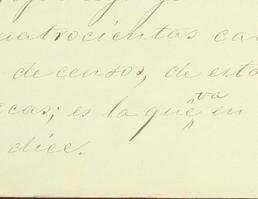 uatrocientas ca
de censos, de esta
cas; es la que va en
dice.